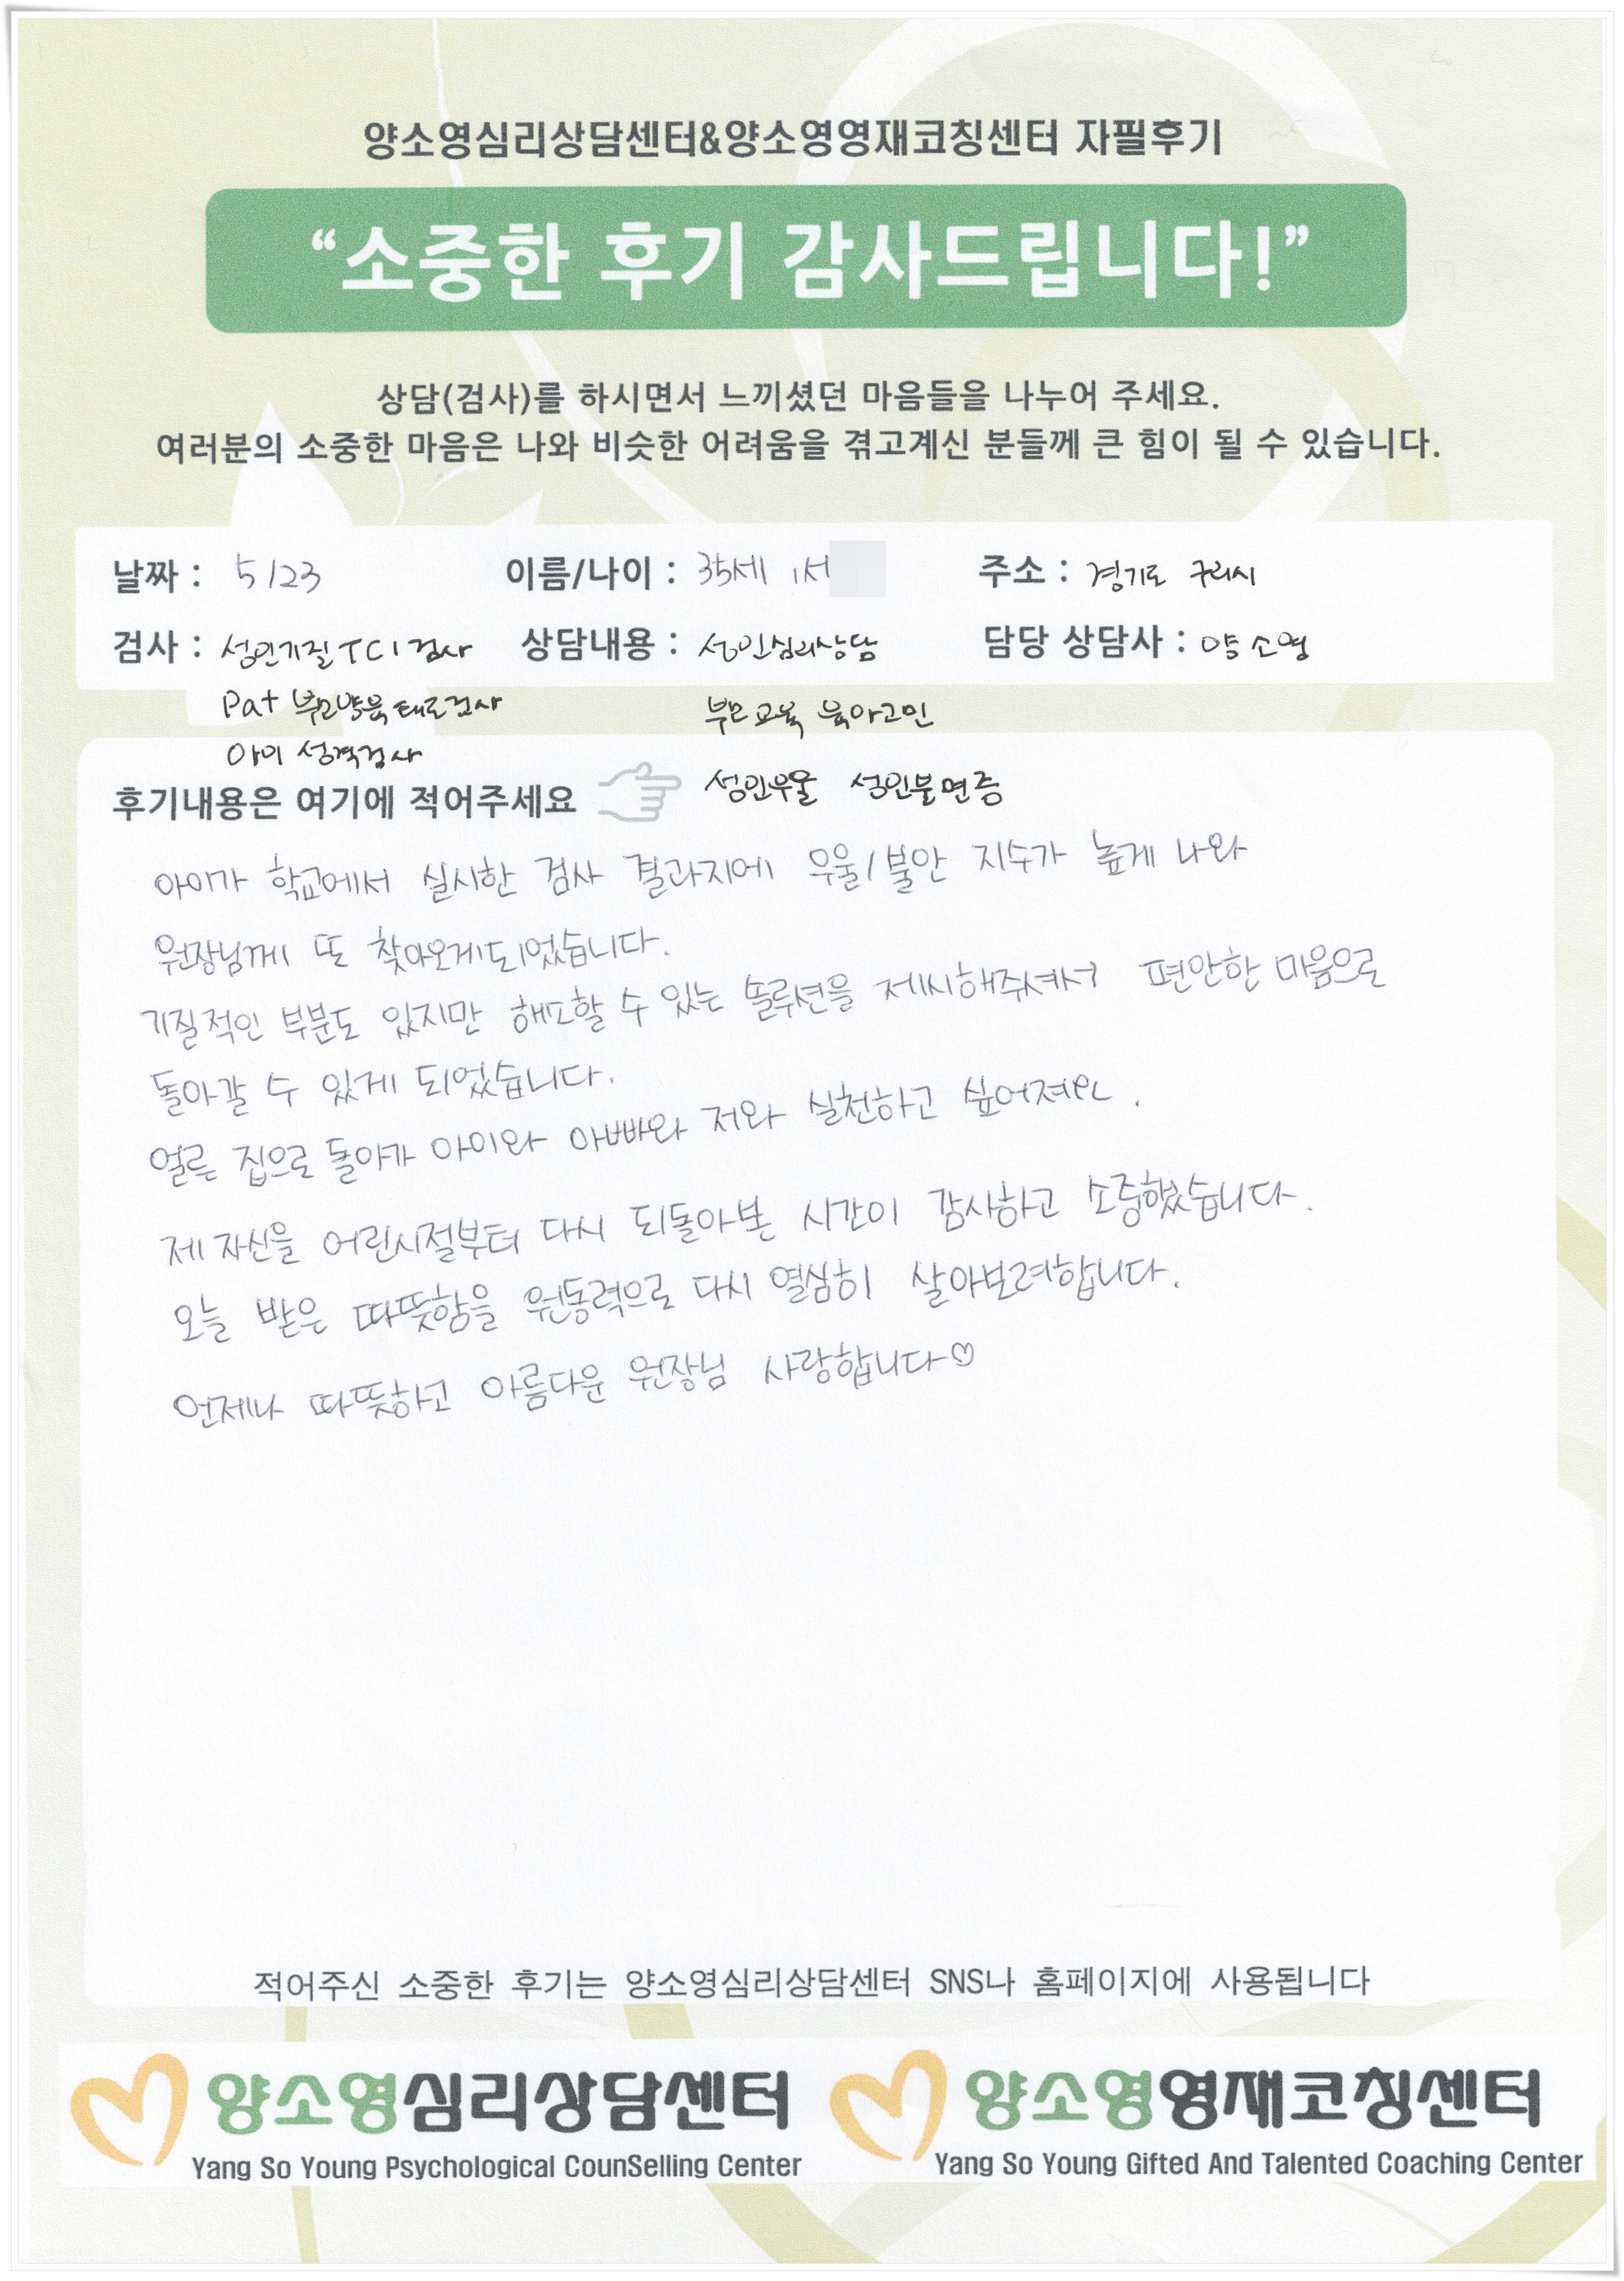 양소영심리상담센터&양소영영재코칭센터 자필후기
“소중한 후기 감사드립니다!”
상담(검사)를 하시면서 느끼셨던 마음들을 나누어 주세요.
여러분의 소중한 마음은 나와 비슷한 어려움을 겪고계신 분들께 큰 힘이 될 수 있습니다.
날짜 : 5/23 이름/나이 : 35세 서 주소 : 경기도 구리시
검사 : 성인기질 TCI 검사 상담내용 : 성인심리상담 담당 상담사 : 양소영
Pat 부모양육태도검사 부모교육 육아고민
아이 성격검사
후기내용은 여기에 적어주세요 성인우울 성인불면증
아이가 학교에서 실시한 검사 결과지에 우울/불안 지수가 높게 나와
원장님께 또 찾아오게되었습니다.
기질적인 부분도 있지만 해소할 수 있는 솔루션을 제시해주셔서 편안한 마음으로
돌아갈 수 있게 되었습니다.
얼른 집으로 돌아가 아이와 아빠와 저와 실천하고 싶어져요.
제 자신을 어린시절부터 다시 되돌아본 시간이 감사하고 소중했습니다.
오늘 받은 따뜻함을 원동력으로 다시 열심히 살아보려합니다.
언제나 따뜻하고 아름다운 원장님 사랑합니다♡
적어주신 소중한 후기는 양소영심리상담센터 SNS나 홈페이지에 사용됩니다
양소영심리상담센터 양소영영재코칭센터
Yang So Young Psychological CounSelling Center Yang So Young Gifted And Talented Coaching Center